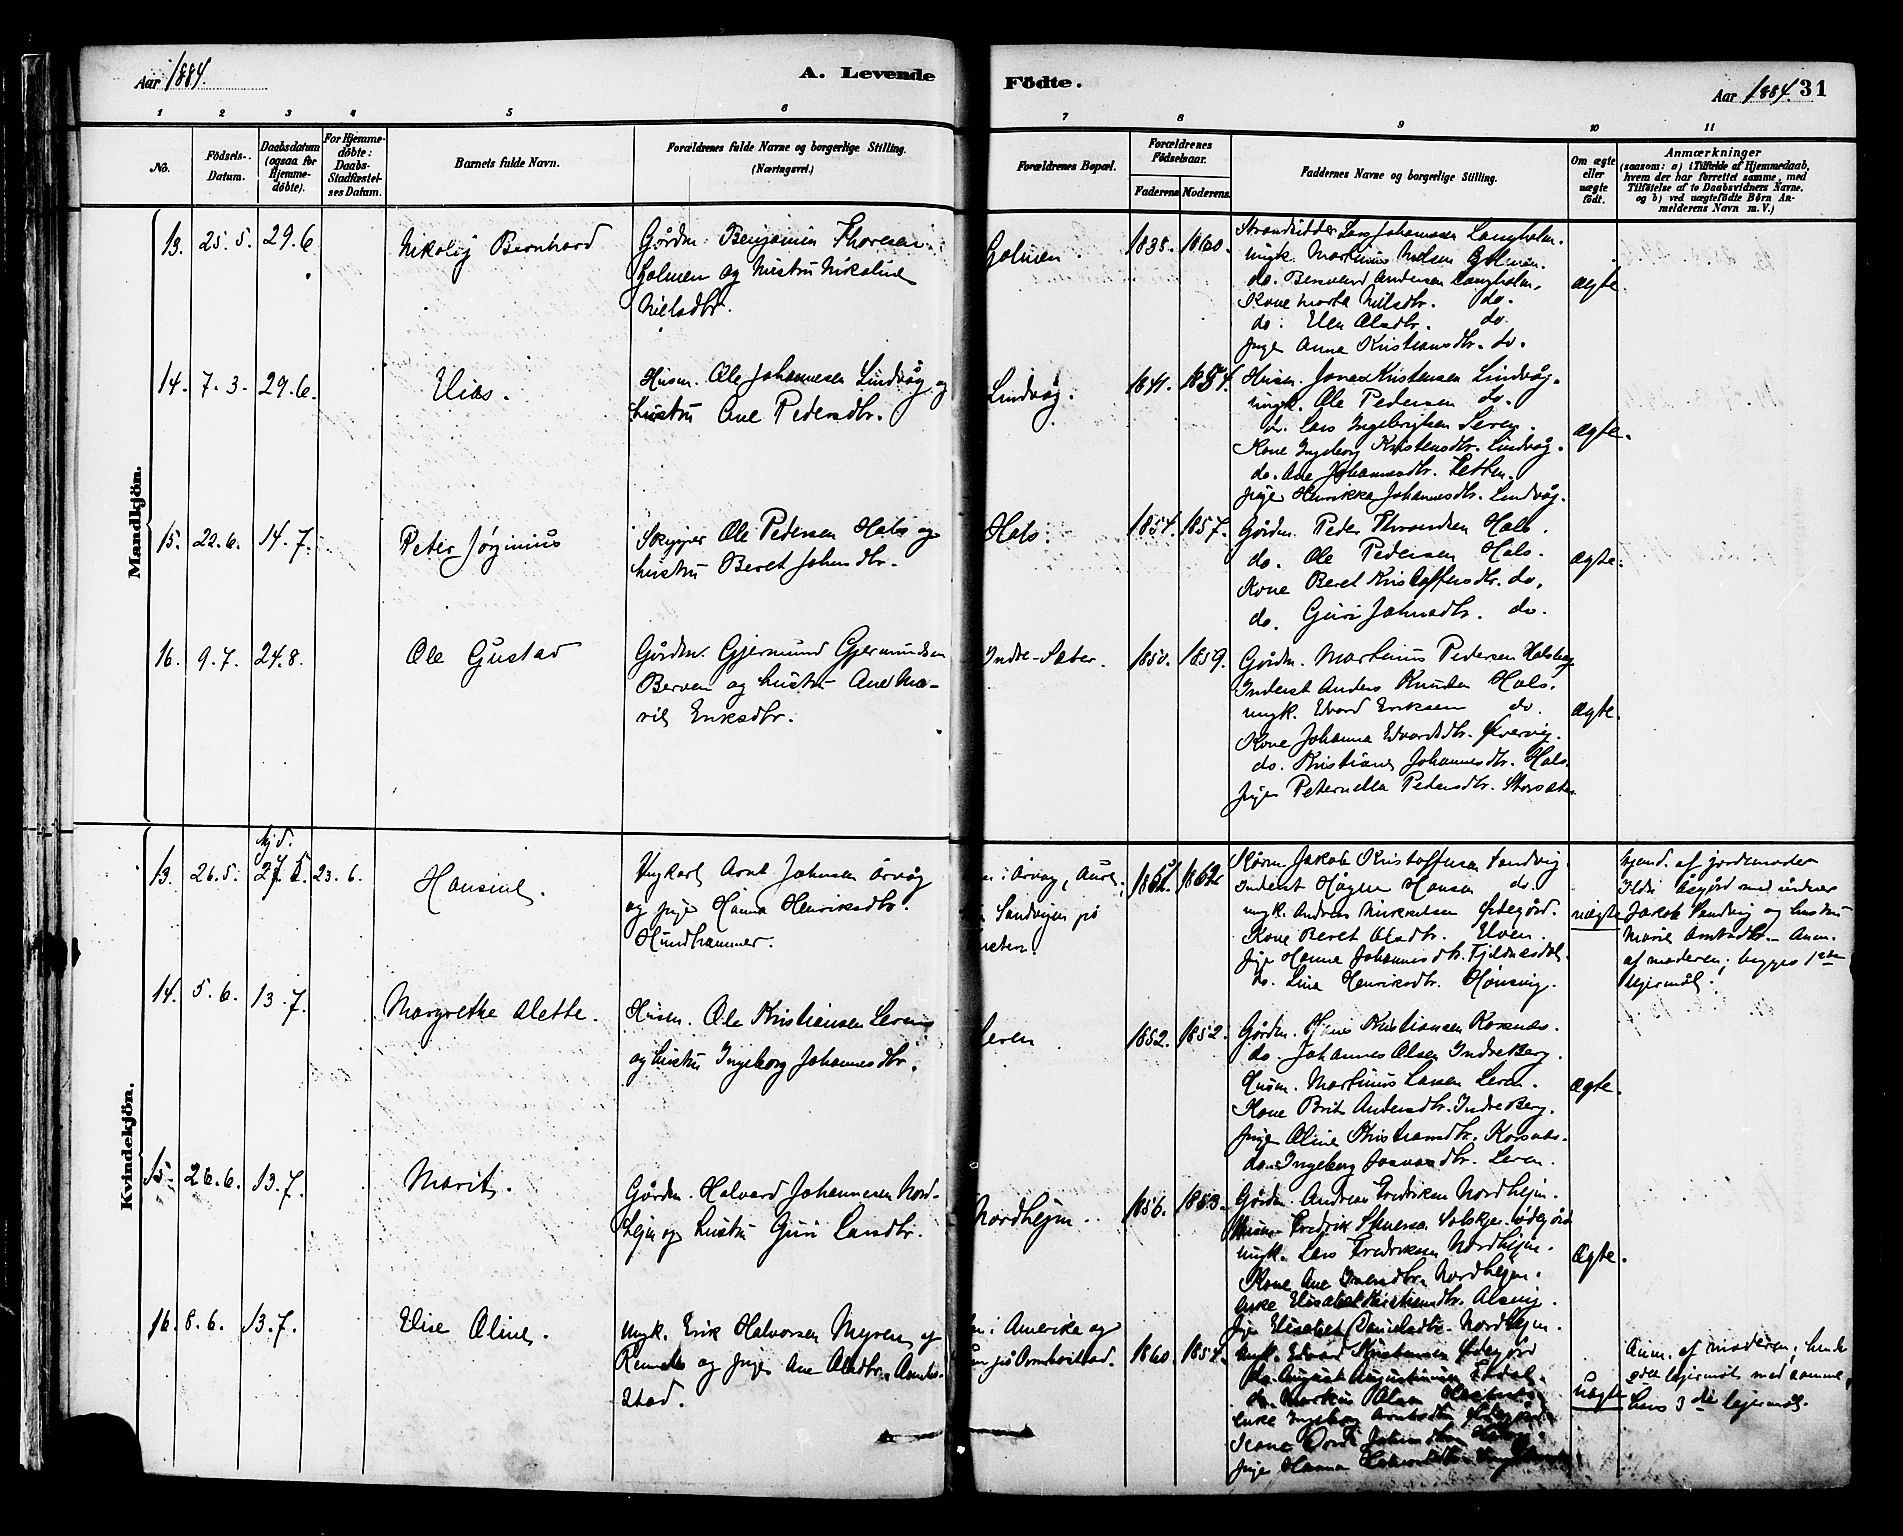 Aar 1884.
A. Levende
Födte.
Aar 1884. 31
1 2 3 4 5 6 7 8 9 10 11
No.
Födsels-
Datum.
Daabsdatum
(ogsaa for
Hjemme-
döbte).
For Hjemme-
döbte:
Daabs-
Stadfæstel-
ses Datum.
Barnets fulde Navn.
Forældrenes fulde Navne og borgerlige Stilling.
(Næringsvei.)
Forældrenes Bopæl.
Forældrenes
Födselsaar.
Faderens Moderens.
Faddernes Navne og borgerlige Stilling.
Om ægte
eller
uægte
födt.
Anmærkninger
(saasom: a) i Tilfælde af Hjemmedaab,
hvem der har forrettet samme, med
Tilföielse af to Daabsvidners Navne,
og b) ved uægtefödte Börn An-
melderens Navn m. V.)
Mandkjön.
13. 25. 5. 29. 6
Nikolij Bernhard
Gårdm. Benjamin Thoresen
Holmen og hustru Nikoline
Nielsdtr.
Holmen.
1838. 1860.
Strandsidder Lars Johannesen Langholm.
ungk. Martinus Nilsen Holmen.
do. Bernhard Andersen Langholm.
Kone Marta Nilsdtr. do.
do. Elen Olsdtr. do.
pige Anna Kristiansdtr. do.
ægte.
14. 7. 3. 29. 6.
Elias.
Husm. Ole Johannesen Lindvåg og
hustru Ane Pedersdtr.
Lindvåg.
1841. 1854.
Husm. Jonas Kristensen Lindvåg.
ungk. Ole Pedersen do.
do. Lars Ingebrigtsen Leren.
Kone Ingeborg Kristensdtr. Lindvåg.
do. Ane Johannesdtr. Setten.
pige Henrikka Johannesdtr. Lindvåg.
ægte.
15. 22. 6. 14. 7.
Peter Jørginius
Skipper Ole Pedersen Hals og
hustru Beret Johnsdtr.
Hals.
1854. 1857.
Gårdm. Peder Thorsen Hals.
do. Ole Pedersen Hals.
Kone Beret Kristoffersdtr. do.
do. Guri Johnsdtr. do.
ægte.
16. 9. 7. 24. 8.
Ole Gustav
Gårdm. Gjermund Gjermundsen
Berven og hustru Ane Ma-
rie Eriksdtr.
Indre-Sæter.
1850. 1859.
Gårdm. Martinus Pedersen
Inderst Anders Knudsen Hals.
ungk. Edvard Eriksen do.
Kone Johanna Edvardsdtr.
do. Kristiane Johannesdtr. Hals.
pige Peternella Pedersdtr. Storsæter
ægte.
Kvindekjön.
13. 26. 5. Hjd. 27. 5. 23. 6.
Hansine.
Ungkarl Arnt Johnsen Årvåg
og pige Hanna Henriksdtr.
Hundhammer.
i Årvåg, Aure
Sandvigen på
1862
Kårm. Jakob Kristoffersen Sandvig.
Inderst Hågen Hansen do.
ungk. Andreas Mikkelsen Ødegård.
Kone Beret Olsdtr. Elven.
pige Hanna Johannesdtr. Fjeldnesdal.
do. Lina Henriksdtr. Hønsvig.
uægte
Hjemd. af jordemoder
Ildri Åsgård med vidner
Jakob Sandvig og hustru
Marie Arntsdtr. – Anm.
af moderen; begges 1ste
lejermål.
14. 5. 6. 13. 7.
Margrethe Alette.
Husm. Ole Kristiansen Leren
og hustru Ingeborg Johannesdtr.
Leren
1852. 1852.
Gårdm. Hans Kristiansen Korsnæs.
do. Johannes Olsen Indre Berg.
Husm. Martinus Larsen Leren.
Kone Brit Andersdtr. Indre Berg.
pige Oline Kristiansdtr. Korsnæs.
do. Ingeborg Jonasdtr. Leren.
ægte.
15. 26. 6. 13. 7.
Marit.
Gårdm. Halvard Johannesen Nord-
hejm og hustru Guri Larsdtr.
Nordhejm.
1856. 1853.
Gårdm. Andreas Fredriksen Nordhejm.
Husm. Fredrik Solskjer Ødegård
ungk. Lars Fredriksen Nordhejm.
Kone Ane Iversdtr. Nordhejm.
enke Elisabet Kristiansdtr. Alsvig.
pige Elisabet Danielsdtr. Nordhejm.
ægte.
16. 8. 6. 13. 7.
Elise Oline.
ungk. Erik Halvorsen Myren af
og pige Ane Olsdtr. Arnts-
stad.
i Amerika og
1860. 1854.
ungk. Edvard Kristensen Ødegård
do. August Augustinusen
do. Markus Olsen
enke Ingeborg Arntsdtr. Ødegård
Kone Dordi Johnsdtr.
pige Hanna
uægte
Anm. af moderen; hendes
2det lejermål med samme,
hans 3die lejermål.